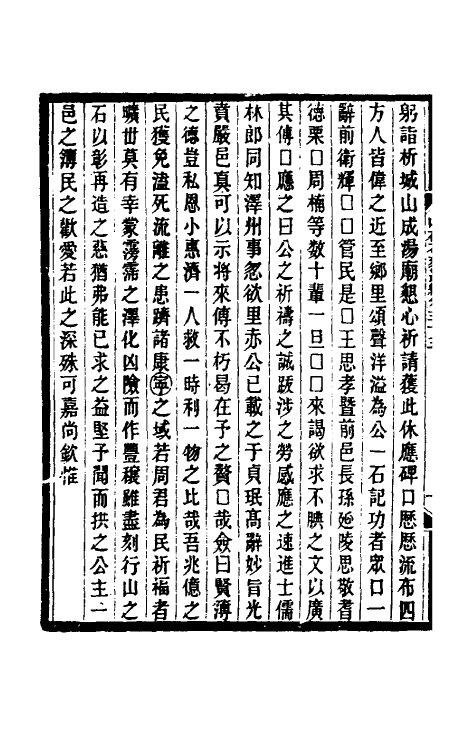 躬詣析城山成湯廟懇心祈請獲此休應碑口歷歷流布四
方人皆偉之近至鄉里頌聲洋溢為公一石記功者眾口一
辭前衛輝□□管民是□王思孝暨前邑長孫廵陵思敬耆
德栗□周楠等數十輩一旦□□來謁欲求不腆之文以廣
其傳□應之曰公之祈禱之誠跋涉之勞感應之速進士儒
林郎同知澤州事忽欲里赤公已載之于貞珉高辭妙旨光
賁嚴邑真可以示將來傳不朽曷在予之贅□哉僉曰賢簿
之德豈私恩小惠濟一人救一時利一物之比哉吾兆億之
民獲免溘死流離之患躋諸康寧之域若周君為民祈福者
曠世莫有幸蒙霶霈之澤化凶險而作豐穰雖盡刻行山之
石以彰再造之惪猶弗能已求之益堅予聞而拱之公主二
邑之簿民之歡愛若此之深殊可嘉尚欽惟